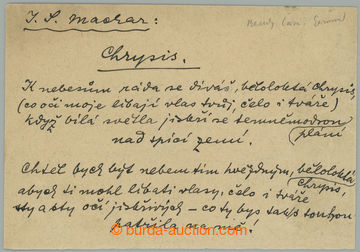 J. S. Machar:
Chrysis.
K nebesům ráda se díváš, běloloktá Chrysis,
(co oči moje líbají vlas tvůj, čelo i tváře)
když bílá světla jiskří se temněmodrou
plání
nad spící zemí.
Chtěl bych být nebem tím hvězdným, běloloktá
Chrysis,
abych ti mohl líbati vlasy, čelo i tváře
sty a sty očí jiskřivých – co ty bys tak s touhou
patřila na mne.
burda-auction.com